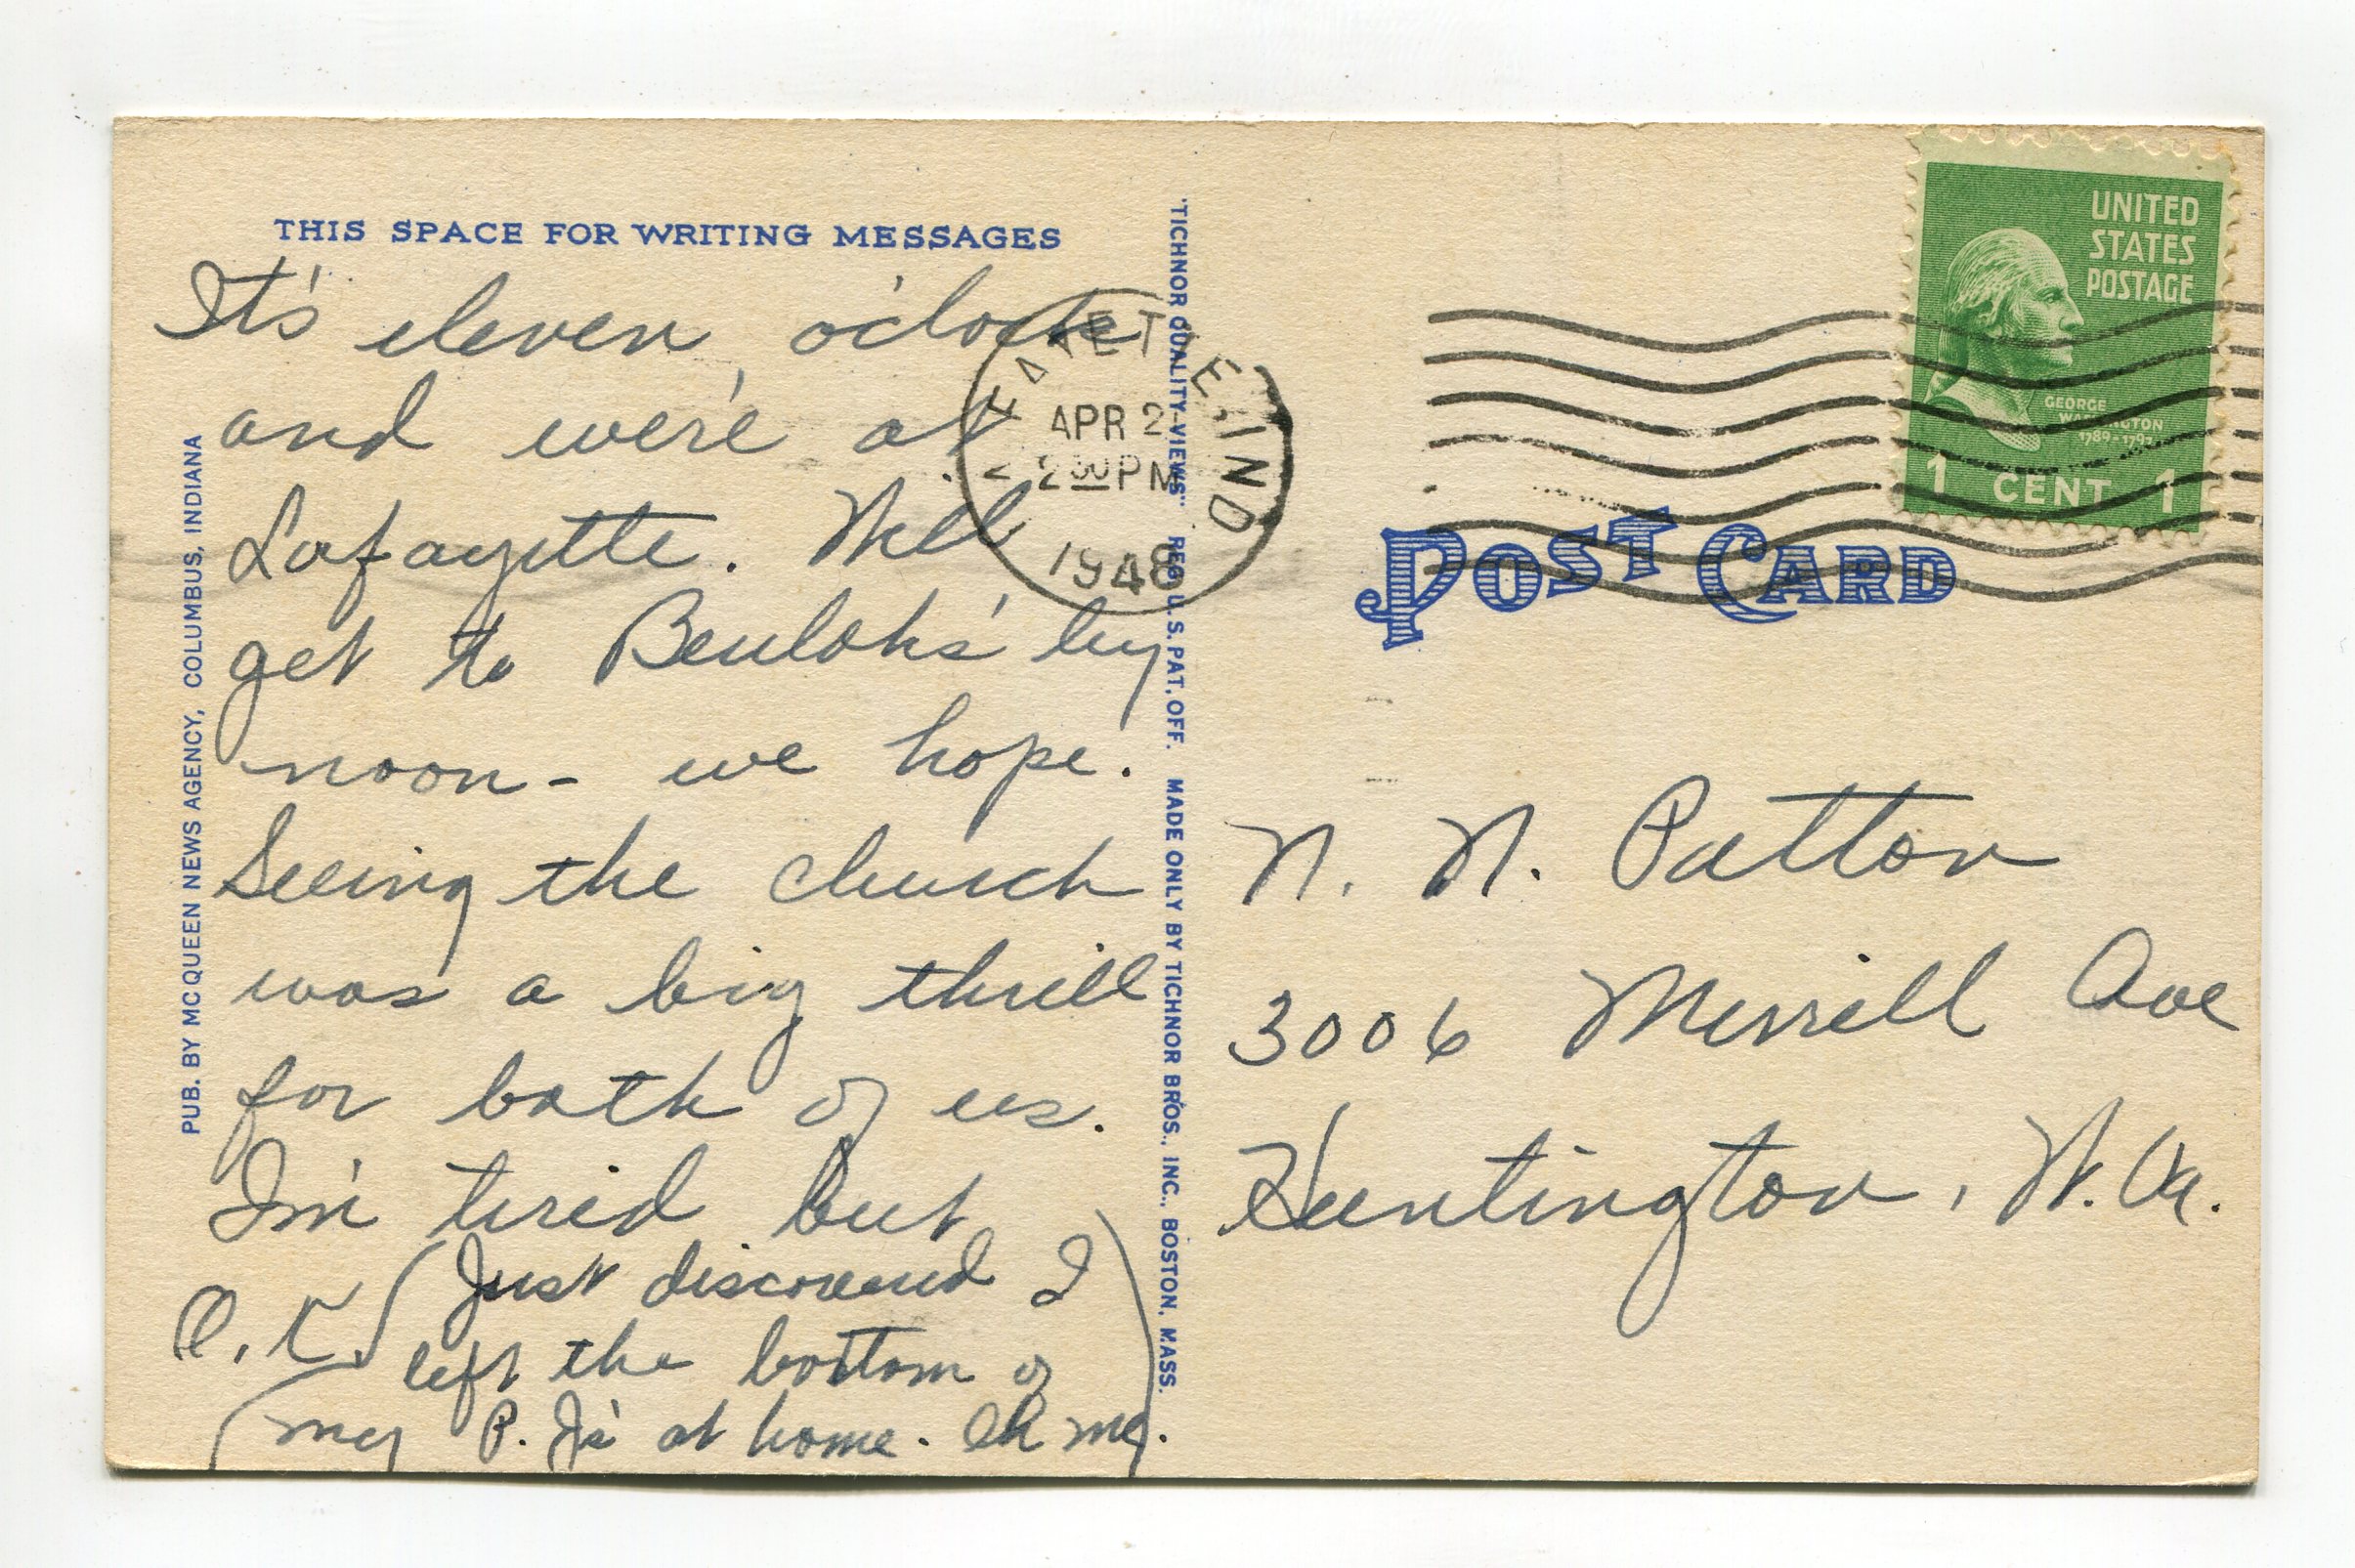 THIS SPACE FOR WRITING MESSAGES
It's eleven o'clock
and we're at
Lafayette. We'll
get to Beulah's by
noon - we hope.
Seeing the church
was a big thrill
for both of us.
I'm tired but
O.K. (Just discovered I
left the bottom of
my P.J's at home. Ah me.)
PUB. BY MCQUEEN NEWS AGENCY, COLUMBUS, INDIANA
"TICHNOR QUALITY VIEWS" REG. U.S. PAT. OFF. MADE ONLY BY TICHNOR BROS., INC., BOSTON, MASS.
IND
APR 2
2 30 PM
1948
UNITED
STATES
POSTAGE
GEORGE
WASHINGTON
1789-1797
1 CENT 1
POST CARD
N. N. Patton
3006 Merrill Ave
Huntington, W. Va.